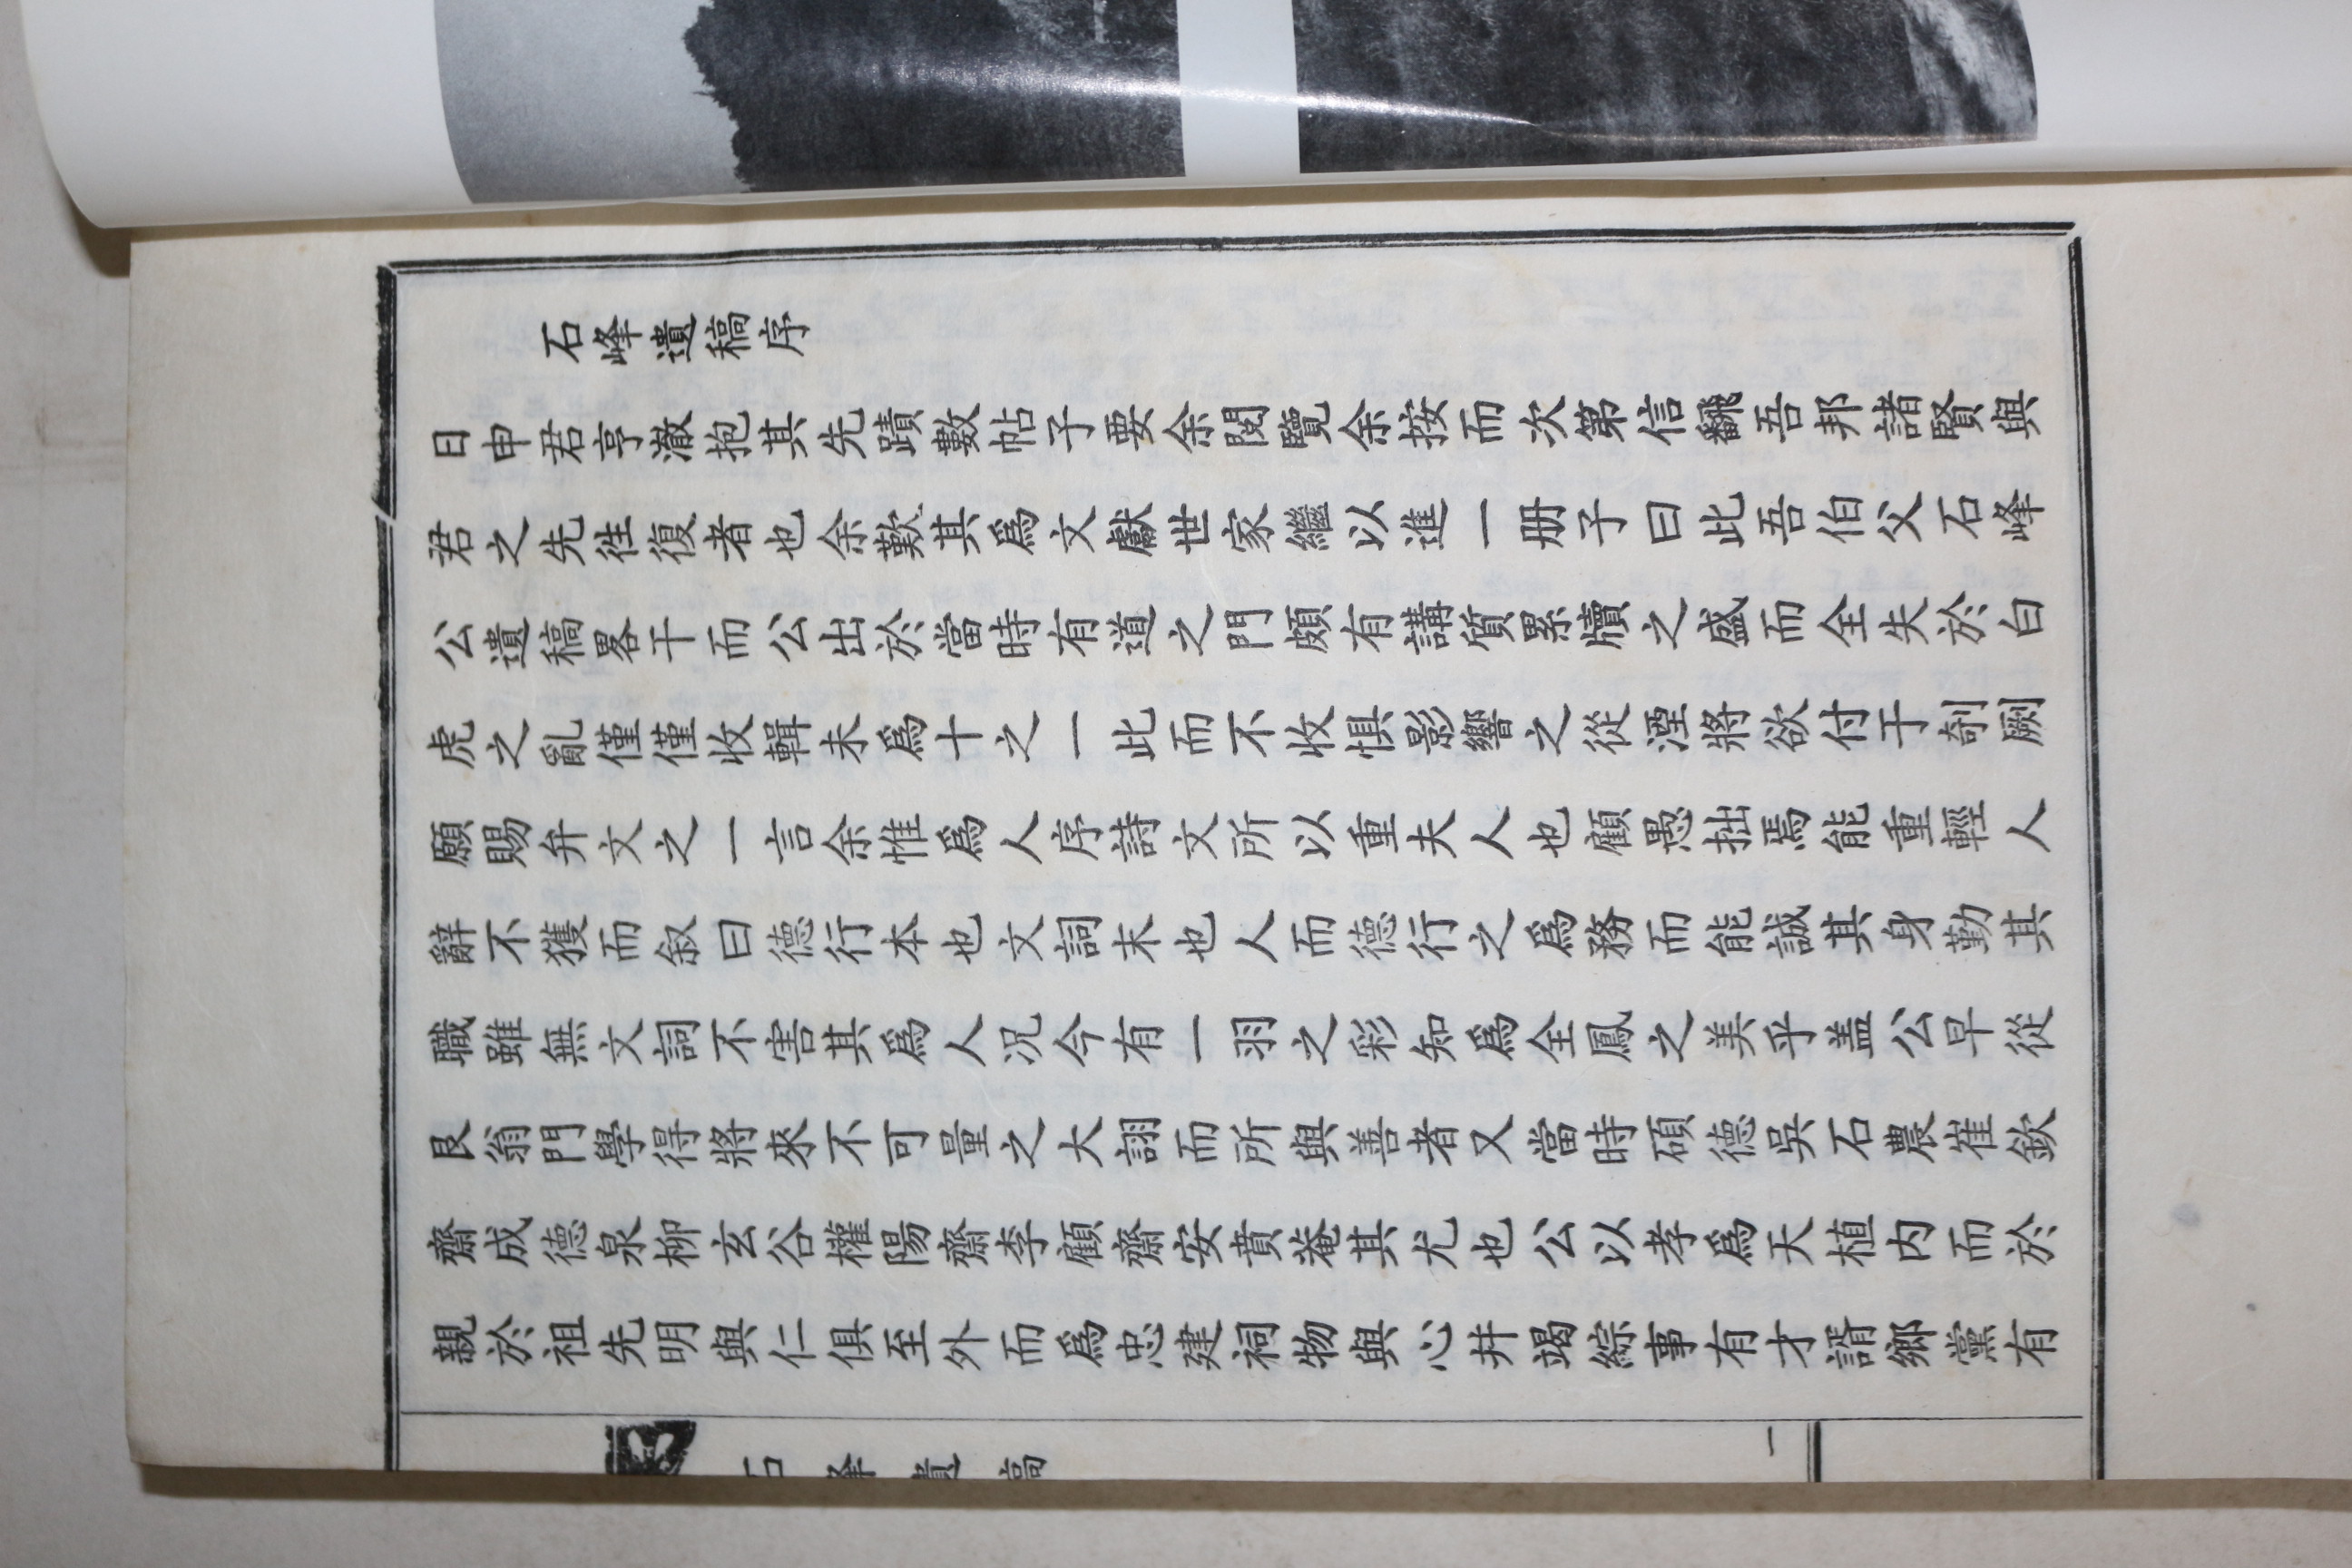 石峰遺稿序
日申君亨澈抱其先蹟數帖子要余閱覽余按而次第信飜吾邦諸賢與
君之先徃復者也余歎其爲文獻世家繼以進一册子曰此吾伯父石峰
公遺稿畧干而公出於當時有道之門頗有講質累牘之盛而全失於白
虎之亂僅僅收輯未爲十之一此而不收惧影響之從湮將欲付于剞劂
願賜弁文之一言余惟爲人序詩文所以重夫人也顧愚拙焉能重輕人
辭不獲而叙曰德行本也文詞末也人而德行之爲務而能誠其身勤其
職雖無文詞不害其爲人况今有一羽之彩知爲全鳳之美乎盖公早從
艮翁門學得將來不可量之大詡而所與善者又當時碩德吳石農崔欽
齋成德泉柳玄谷權陽齋李顧齋安賁菴其尤也公以孝爲天植内而於
親於祖先明與仁俱至外而爲忠建祠物與心井竭綜事有才諝鄉黨有
石峰遺稿
一